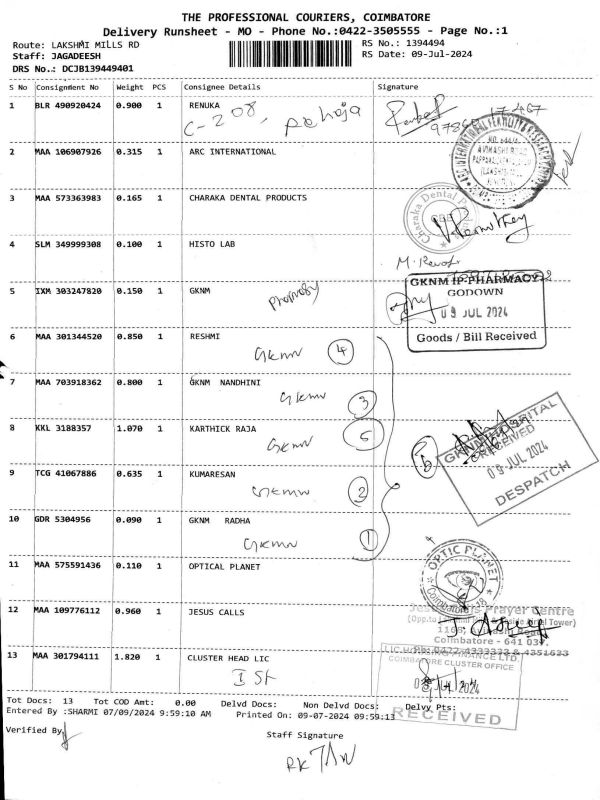 THE PROFESSIONAL COURIERS, COIMBATORE
Delivery Runsheet - MO - Phone No.:0422-3505555 - Page No.:1
Route: LAKSHMI MILLS RD
Staff: JAGADEESH
DRS No.: DCJB139449401
RS No.: 1394494
RS Date: 09-Jul-2024
S No Consignment No Weight PCS Consignee Details Signature
1 BLR 490920424 0.900 1 RENUKA
C-208,
2 MAA 106907926 0.315 1 ARC INTERNATIONAL
3 MAA 573363983 0.165 1 CHARAKA DENTAL PRODUCTS
Charaka Dental
4 SLM 349999308 0.100 1 HISTO LAB
5 IXM 303247820 0.150 1 GKNM
GKNM IP PHARMACY
GODOWN
09 JUL 2024
Goods / Bill Received
6 MAA 301344520 0.850 1 RESHMI
GKNM 4
7 MAA 703918362 0.800 1 GKNM NANDHINI
GKNM 3
8 KKL 3188357 1.070 1 KARTHICK RAJA
GKNM
GKNM HOSPITAL
RECEIVED
09 JUL 2024
DESPATCH
9 TCG 41067886 0.635 1 KUMARESAN
GKNM 2
10 GDR 5304956 0.090 1 GKNM RADHA
GKNM 1
11 MAA 575591436 0.110 1 OPTICAL PLANET
OPTIC PLANET
Coimbatore
12 MAA 109776112 0.960 1 JESUS CALLS
Prayer Centre
Coimbatore - 641 037
13 MAA 301794111 1.820 1 CLUSTER HEAD LIC
I St
LIC HOUSING FINANCE LTD.
COIMBATORE CLUSTER OFFICE
RECEIVED
Tot Docs: 13 Tot COD Amt: 0.00 Delvd Docs: Non Delvd Docs: Delvy Pts:
Entered By :SHARMI 07/09/2024 9:59:10 AM Printed On: 09-07-2024 09:59:13
Verified By
Staff Signature